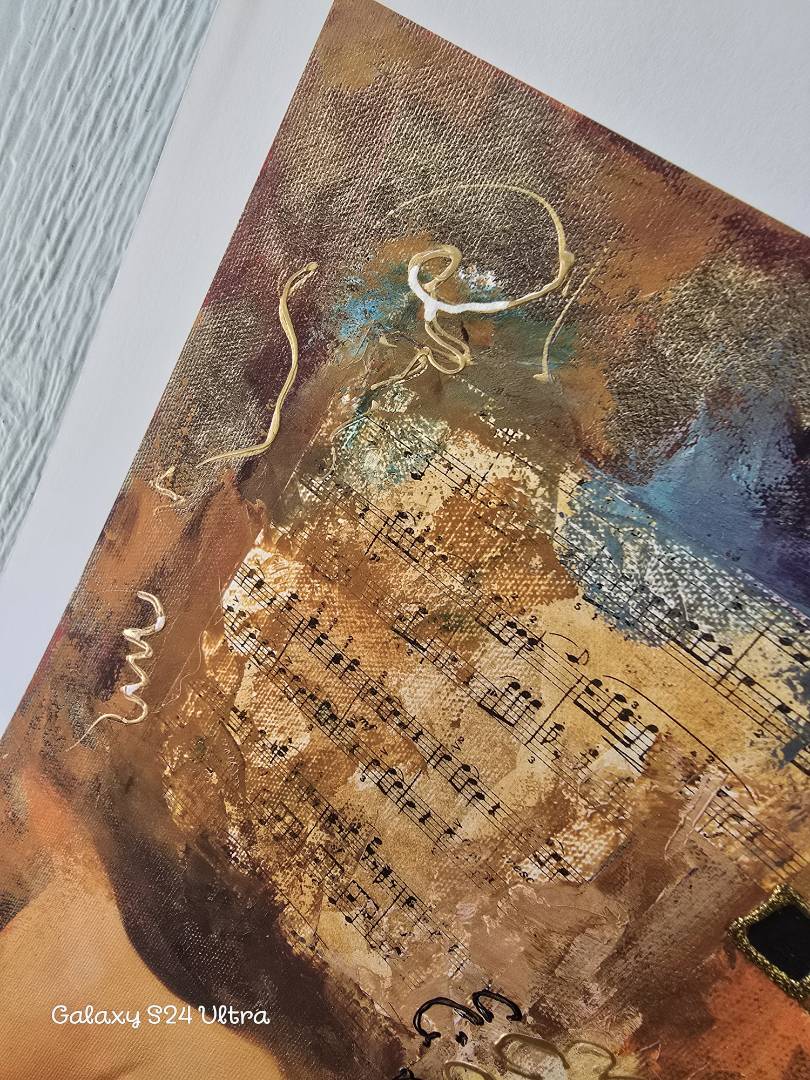 Galaxy S24 Ultra